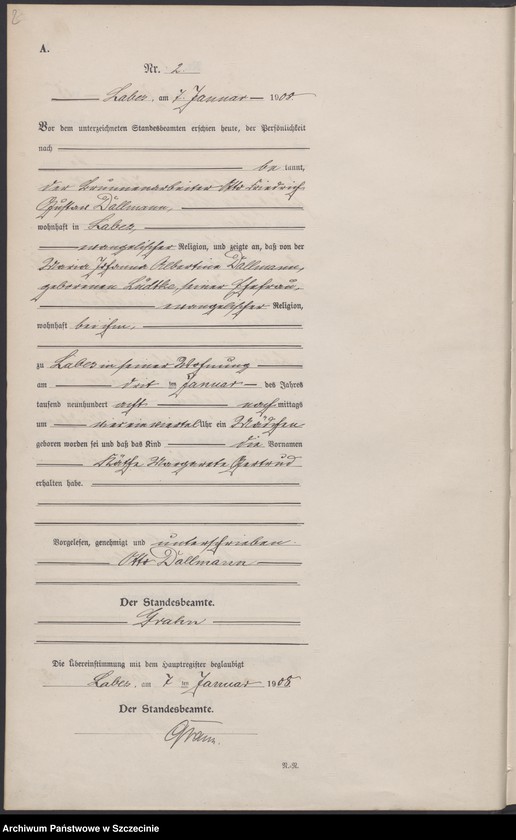 A.
Nr. 2.
Labes, am 7. Januar 1908
Vor dem unterzeichneten Standesbeamten erschien heute, der Persönlichkeit
nach
be kannt,
der Brunnenarbeiter Otto Friedrich
Gustav Dallmann,
wohnhaft in Labes,
evangelischer Religion, und zeigte an, daß von der
Maria Johanna Albertine Dallmann,
geborenen Lüdtke, seiner Ehefrau,
evangelischer Religion,
wohnhaft bei ihm,
zu Labes in seiner Wohnung
am drit ten Januar des Jahres
tausend neunhundert acht nach mittags
um vier ein viertel Uhr ein Mädchen
geboren worden sei und daß das Kind die Vornamen
Käthe Margarete Gertrud
erhalten habe.
Vorgelesen, genehmigt und unterschrieben.
Otto Dallmann
Der Standesbeamte.
Die Übereinstimmung mit dem Hauptregister beglaubigt
Labes, am 7 ten Januar 1908
Der Standesbeamte.
Archiwum Państwowe w Szczecinie